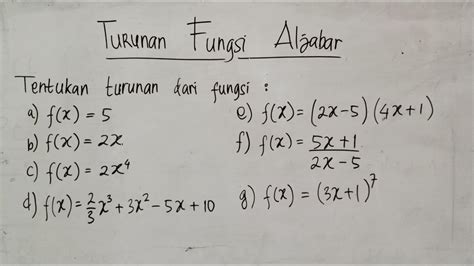 Turunan Fungsi Aljabar
Tentukan turunan dari fungsi :
a) f(x) = 5
b) f(x) = 2x
c) f(x) = 2x⁴
d) f(x) = 2/3 x³ + 3x² - 5x + 10
e) f(x) = (2x-5) (4x+1)
f) f(x) = (5x+1)/(2x-5)
g) f(x) = (3x+1)⁷